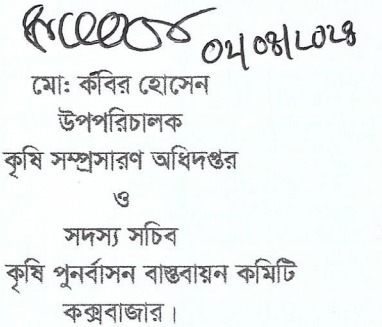 ০২/০৪/২০২৪
মো: কবির হোসেন
উপপরিচালক
কৃষি সম্প্রসারণ অধিদপ্তর
ও
সদস্য সচিব
কৃষি পুনর্বাসন বাস্তবায়ন কমিটি
কক্সবাজার।